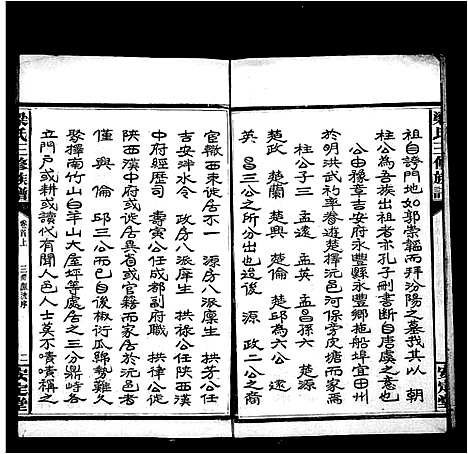 祖自誇門地如郭崇韜而拜汾陽之墓我其以　朝
柱公為吾族出祖者亦孔子刪書斷自唐虞之意也
公豫章吉安府永豐縣永豐鄉拖船埠宜田州
於明洪武初奉□遊楚擇沅邑河保旁皮塘而家焉
柱公子三　孟遠　孟英　孟昌孫六　楚源
楚政　楚興　楚倫　楚邱為六公　遠
英　昌三公之所分出也後　源　政二公之裔
官轍西東徙居不一　源房八派庠生
吉安泮水令　政房八派庠生　拱祿公任陝西漢
中府經歷司　賚寅公任成都副府職　拱律公徙
陝西漢中府居焉或官籍而家居於沅邑者
僅　興　倫　邱三公而已自後椒衍瓜綿勢難久
聚擇南竹山白羊山大屋坪等處居之三分鼎峙各
立門戶或耕或讀代有聞人邑人士莫不嘖嘖稱之
梁氏三修族譜
卷首上
三修源流序
二
安定堂
梁氏三修族譜
安定堂